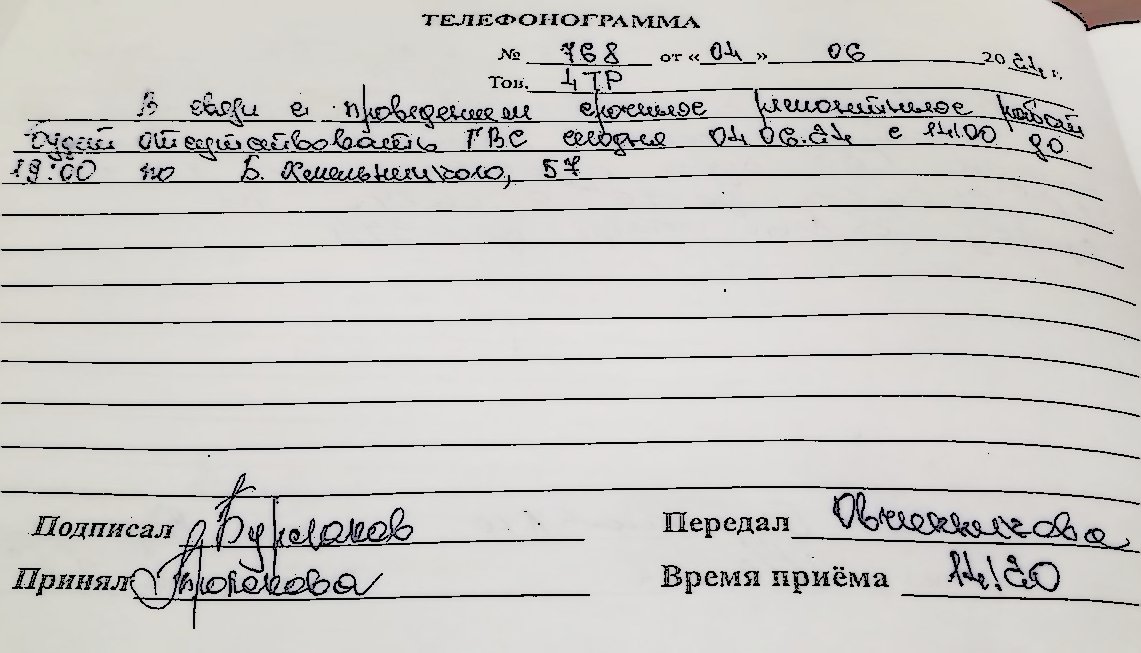 ТЕЛЕФОНОГРАММА
№ 768 от «04» 06 2024 г.
Тов. ЦТР
В связи с проведением срочных ремонтных работ
будет отсутствовать ГВС сегодня 04.06.24 с 14:00 до
19:00 по Б. Хмельницкого, 57
Подписал Бурлаков Передал Овчинникова
Принял Время приёма 14:20